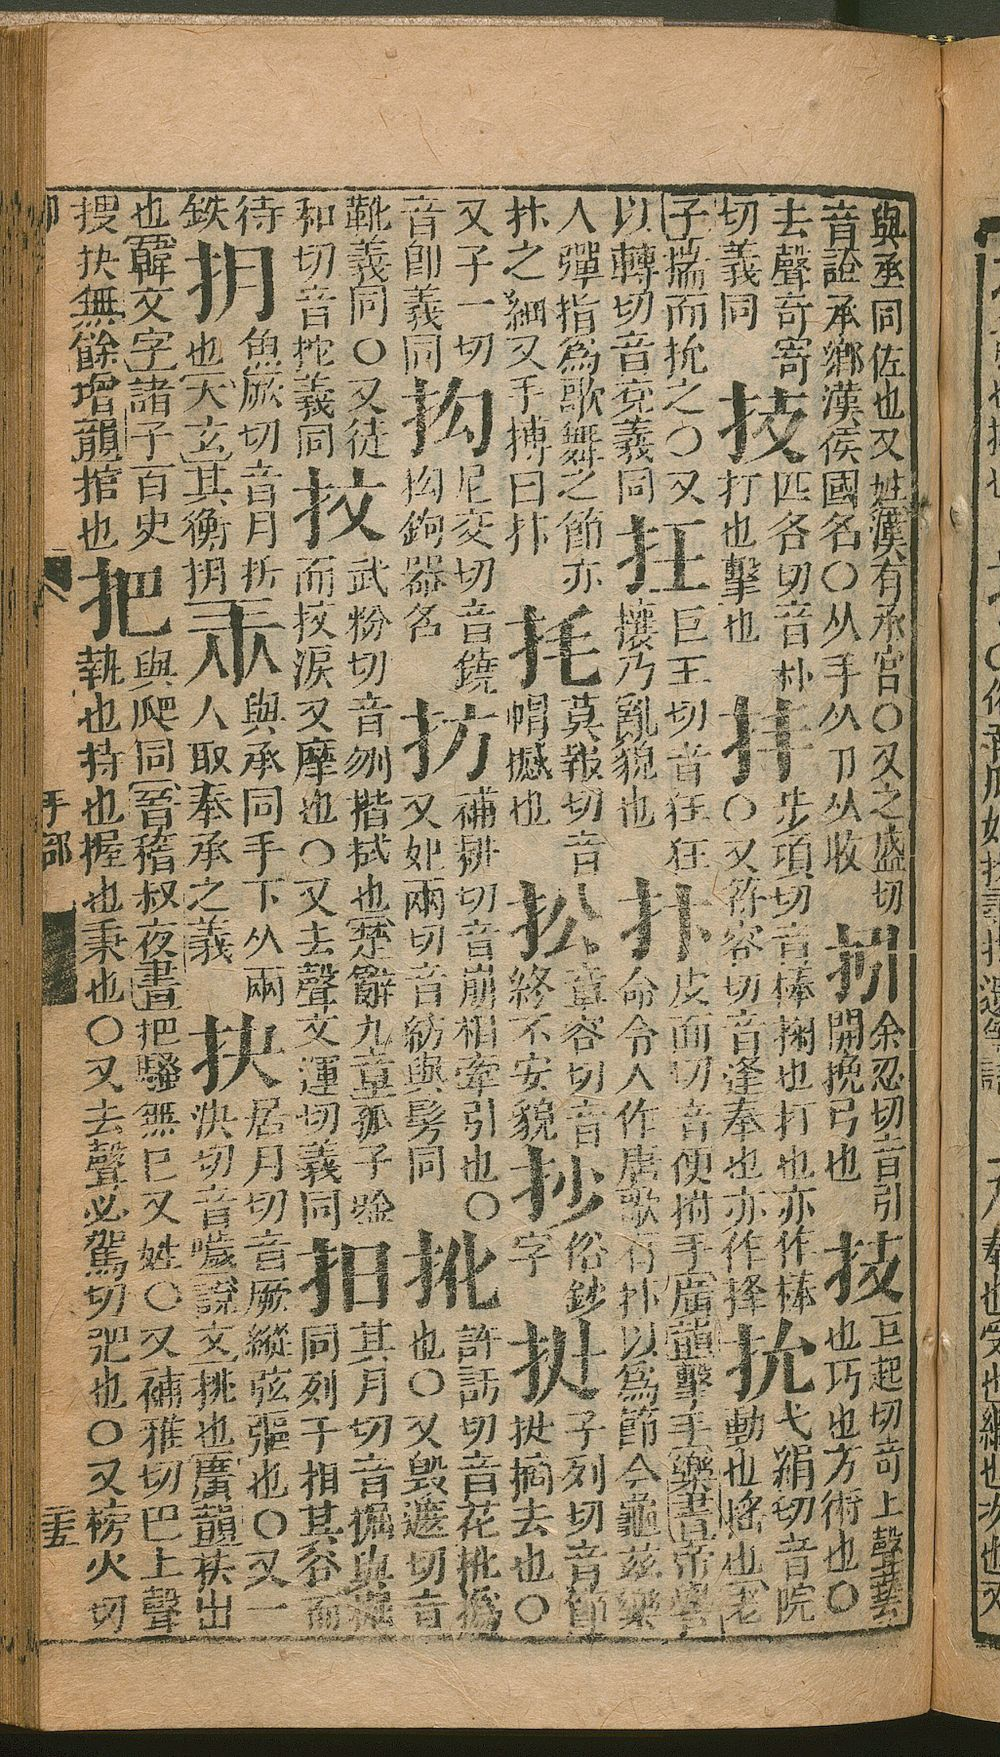 與丞同佐也又姓漢有承宮〇又之盛切音證承鄉漢侯國名〇从手从卩从收㧈余忍切音引開挽弓也技巨起切奇上聲藝也巧也方術也〇
去聲奇寄切義同技匹各切音朴打也擊也步項切音棒掬也打也亦作棒〇又符容切音逢奉也亦作捀抁弋絹切音院動也搖也老
子揣而抁之〇又以轉切音兗義同抂巨王切音狂狂攘乃亂貌也抃皮面切音便拊手廣韻擊手樂書帝嚳命令人作唐歌有抃以爲節今龜茲樂
人彈指爲歌舞之節亦抃之細又手搏曰抃㧌莫報切音帽撼也章容切音終不安貌抄俗鈔字子列切音節摘去也〇
又子一切音卽義同抝尼交切音鐃抝鉤器名補耕切音崩相牽引也〇又妃兩切音紡與髣同許話切音花撝也〇又毀遮切音
靴義同〇又徒和切音拕義同抆武粉切音刎揩拭也楚辭九章孤子唫而抆淚又摩也〇又去聲文運切義同抇其月切音掘與掘同列子相其谷而
待鉄抈魚厥切音月折也太玄其衡抈與承同手下从兩人取奉承之義抉居月切音厥縱弦彄也〇又一決切音噦說文挑也廣韻抉出
也韓文字諸子百史搜抉無餘增韻捾也把與爬同晉嵇叔夜書把騷無已又姓〇又補雅切巴上聲執也持也握也秉也〇又去聲必駕切弝也〇又火切
手部
三五